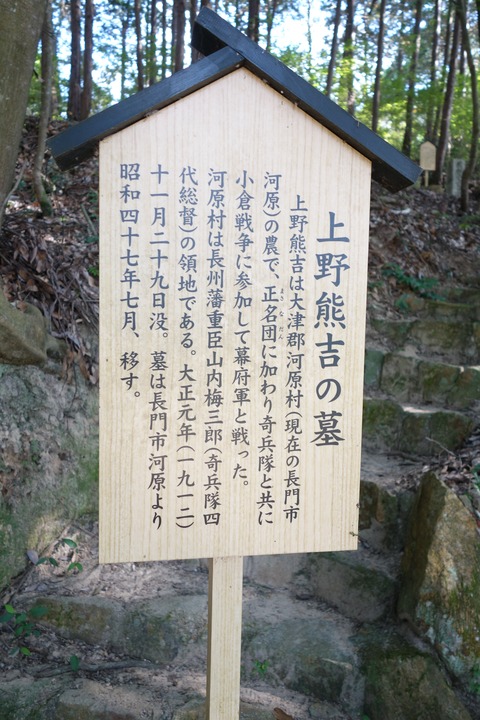 上野熊吉の墓
上野熊吉は大津郡河原村（現在の長門市
河原）の農で、正名団に加わり奇兵隊と共に
小倉戦争に参加して幕府軍と戦った。
河原村は長州藩重臣山内梅三郎（奇兵隊四
代総督）の領地である。大正元年（一九一二）
十一月二十九日没。墓は長門市河原より
昭和四十七年七月、移す。